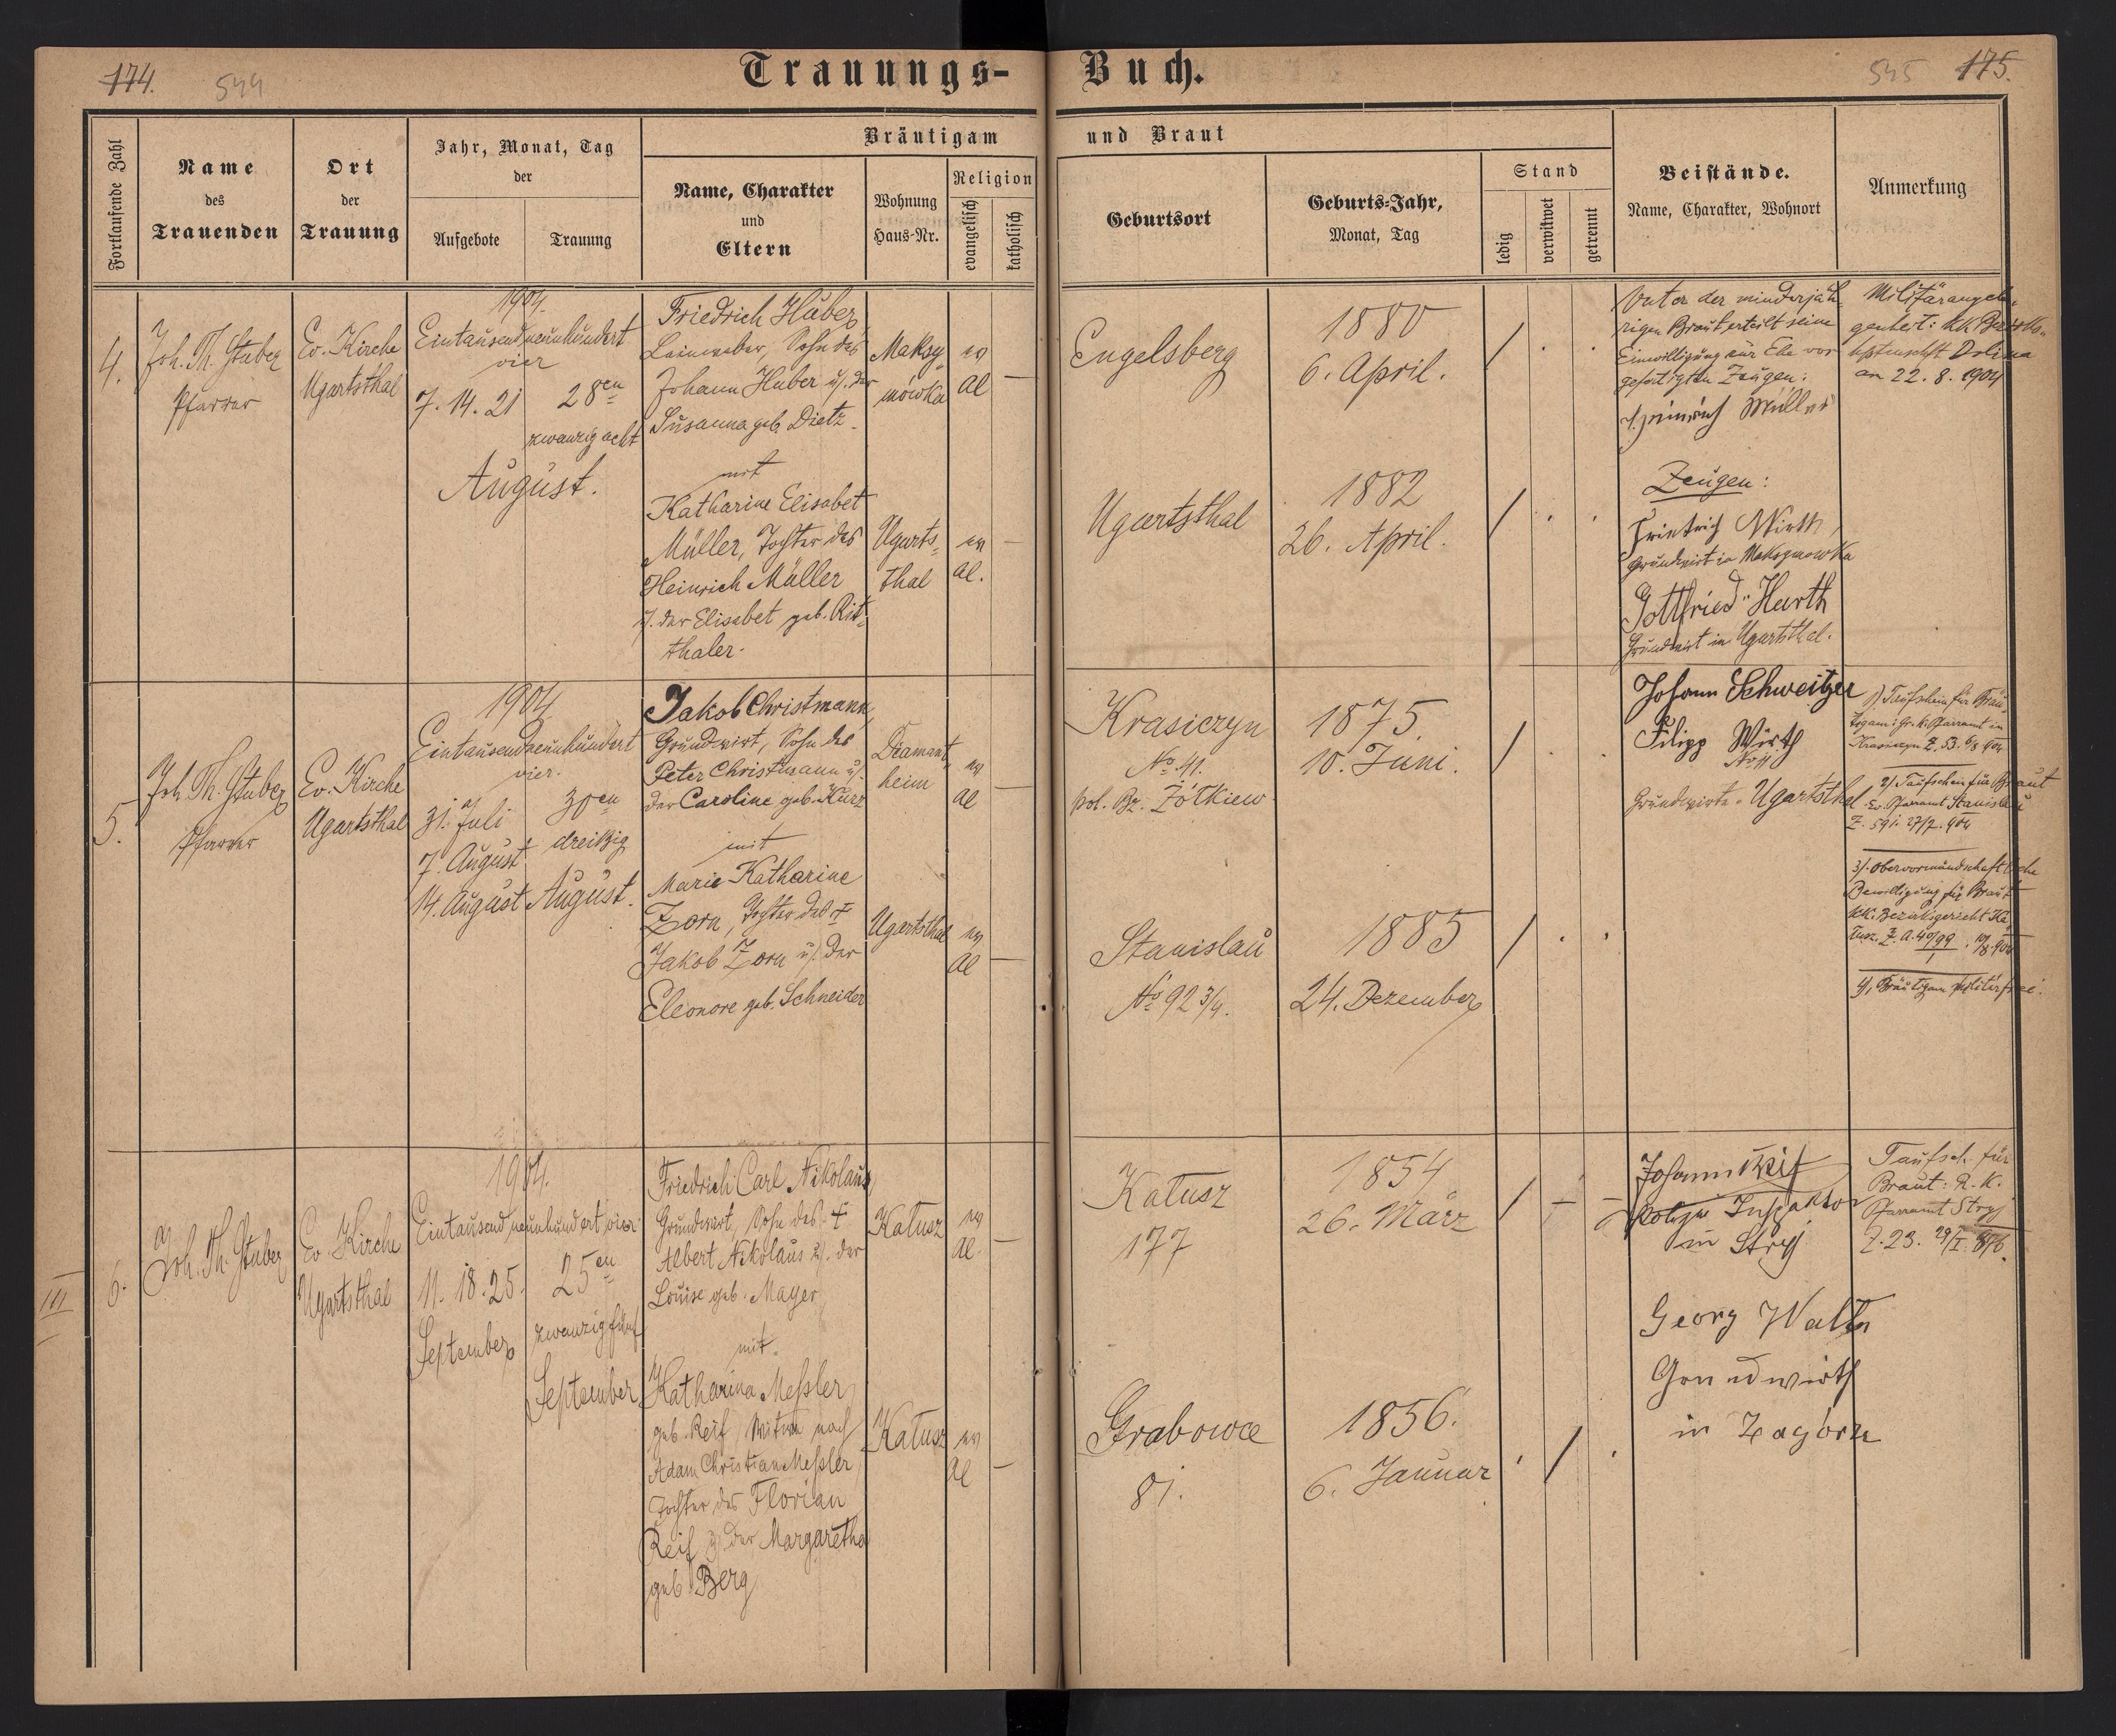 174.
544
Trauungs-Buch.
545
175.
Fortlaufende Zahl
Name
des
Trauenden
Ort
der
Trauung
Jahr, Monat, Tag
der
Aufgebote
Trauung
Bräutigam und Braut
Name, Charakter
und
Eltern
Wohnung
Haus-Nr.
Religion
evangelisch
katholisch
Geburtsort
Geburts-Jahr,
Monat, Tag
Stand
ledig
verwitwet
getrennt
Beistände.
Name, Charakter, Wohnort
Anmerkung
4.
Joh. Th. Stuber
Pfarrer
Ev. Kirche
Ugartsthal
1904.
Eintausendneunhundert
vier
7. 14. 21
28en
zwanzig acht
August.
Friedrich Huber,
Leinweber, Sohn des
Johann Huber u/. der
Susanna geb. Dietz.
mit
Katharine Elisabet
Müller, Tochter des
Heinrich Müller
u/. der Elisabet geb. Rit-
thaler.
Maksy-
mówka
ev
al
Ugarts-
thal
ev
al.
Engelsberg
1880
6. April.
Ugartsthal
1882
26. April.
Vater der minderjäh-
rigen Braut erteilt seine
Einwilligung zur Ehe vor
gefertigten Zeugen:
Heinrich Müller
Zeugen:
Frietrich Wirth,
Grundwirt in Maksymowka
Gottfried Harth
Grundwirt in Ugartsthal.
Militärangele-
genheit: k.k. Bezirks-
hptmschft Dolina
an 22. 8. 1904
5.
Joh. Th. Stuber
Pfarrer
Ev. Kirche
Ugartsthal
1904
Eintausendneunhundert
vier.
31. Juli
7. August
14. August
30en
dreißig
August.
Jakob Christmann,
Grundwirt, Sohn des
Peter Christmann u/.
der Caroline geb. Kurz
mit
Marie Katharine
Zorn, Tochter des †
Jakob Zorn u/. der
Eleonore geb. Schneider
Diamant-
heim
ev
al
Ugartsthal
ev
al
Krasiczyn
No. 41.
pol. Bz. Żółkiew
1875.
10. Juni.
Stanislau
No 92 3/4.
1885
24. Dezember
Johann Schweitzer
Filipp Wirth
Grundwirte - Ugartsthal
1) Taufschein für Bräu-
tigam: Gr. k. Pfarramt in
Krasiczyn Z. 53. 6/8 904
2/. Taufschein für Braut
Ev. Pfarramt Stanislau
Z. 591. 27/7. 904
3/. Obervormundschaftliche
Bewilligung für Braut
kk. Bezirksgericht Ka-
łusz. Z. A. 40/99
4/. Bräutigam militärfrei.
III
6.
Joh. Th. Stuber
Ev. Kirche
Ugartsthal
1904.
Eintausend neunhundert vier
11. 18. 25.
September
25en
zwanzig fünf
September
Friedrich Carl Nikolaus,
Grundwirt, Sohn des †
Albert Nikolaus u/. der
Louise geb. Mayer
mit
Katharina Meßler,
geb. Reif, Witwe nach
Adam Christian Meßler,
Tochter des Florian
Reif u/. der Margaretha
geb. Berg
Kałusz
ev
al.
Kałusz
ev
al
Kałusz
177
1854
26. März
Grabowce
81.
1856.
6. Januar
Johann Reif
Polizei Inspektor
in Stryj
Georg Walter
Grundwirth
in Zagórze
Taufsch. für
Braut: R. K.
Pfarramt Stryj
Z. 23. 29/I. 876.